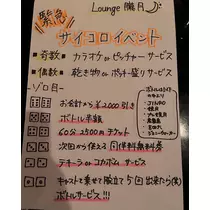 Lounge 朧月
緊急
サイコロイベント
奇数▶カラオケorピッチャーサービス
偶数▶乾き物orポッキー盛りサービス
ゾロ目
お会計から¥2000引き
ボトル半額
60分2500円チケット
次回から使える同伴料無料券
テキーラorコカボムサービス
キャストを乗せて腕立て5回出来たら(笑)
ボトルサービス!!!
JINRO
鏡月
黒霧島